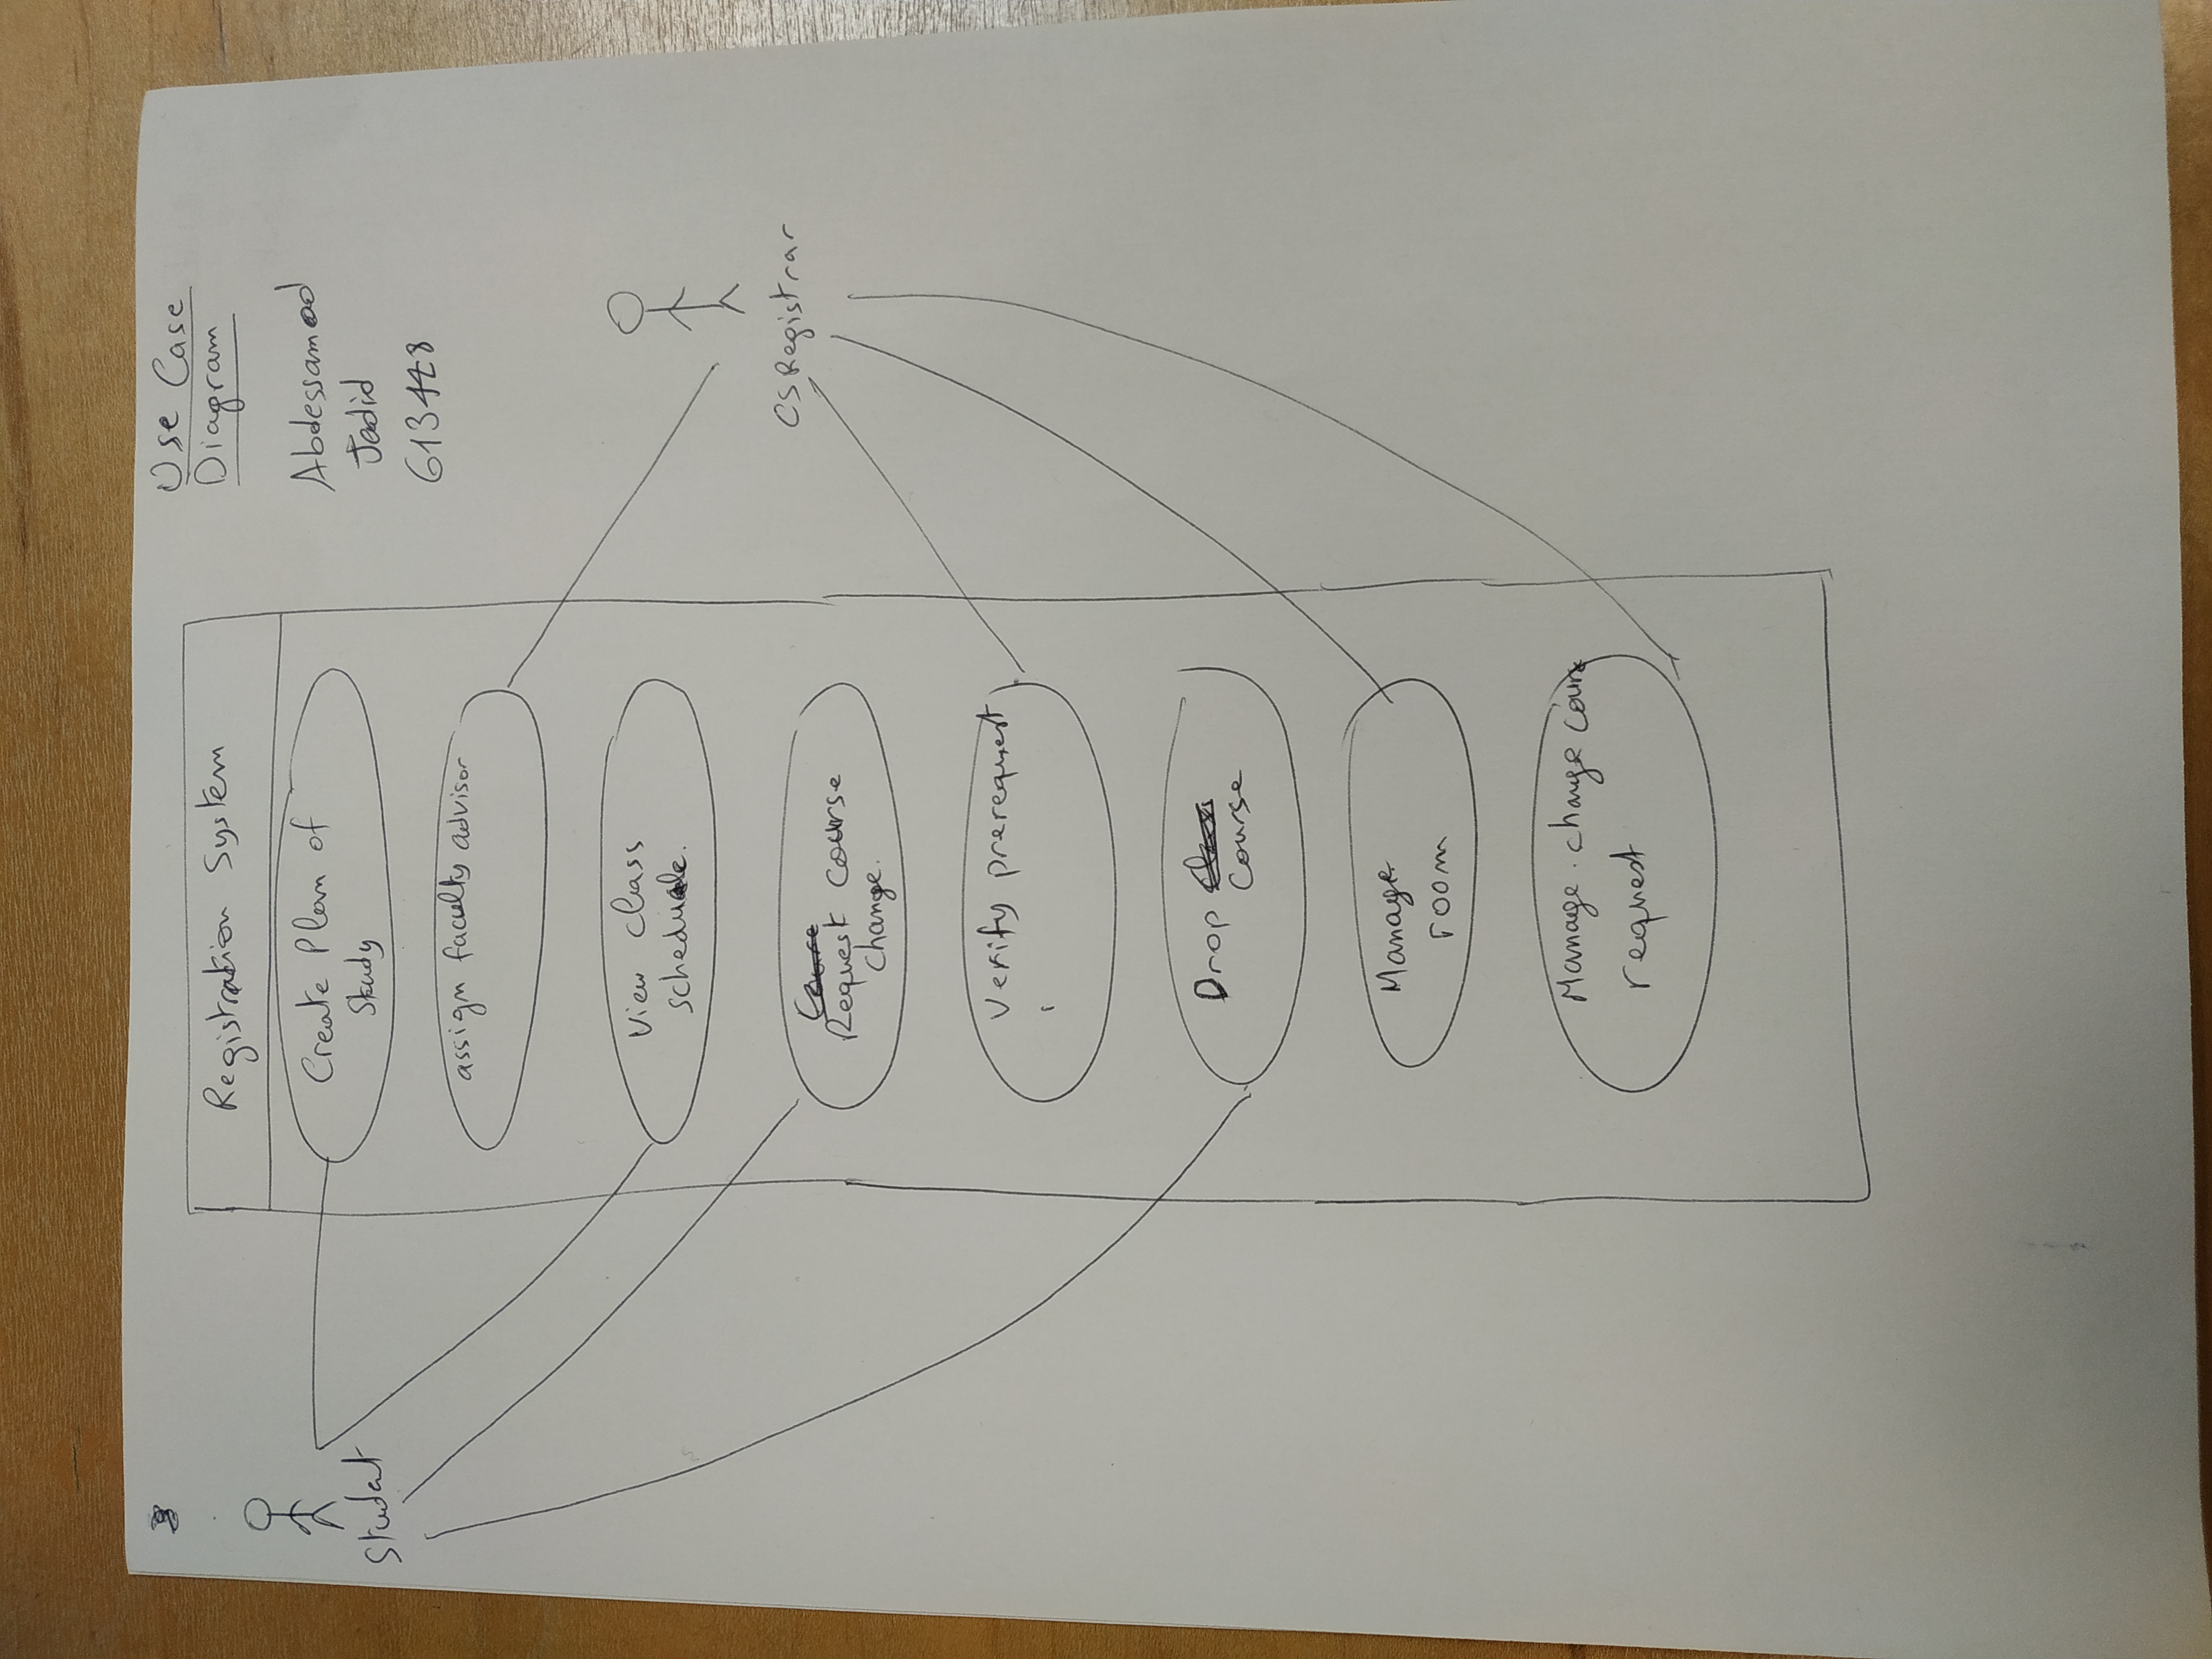 Use Case
Diagram
Abdessamad
Jadid
Registration System
Student
Create Plan of
Study
assign faculty advisor
View class
schedule.
Request Course
change.
CS Registrar
Verify prerequest
Drop
Course
Manage
room
Manage change Course
request